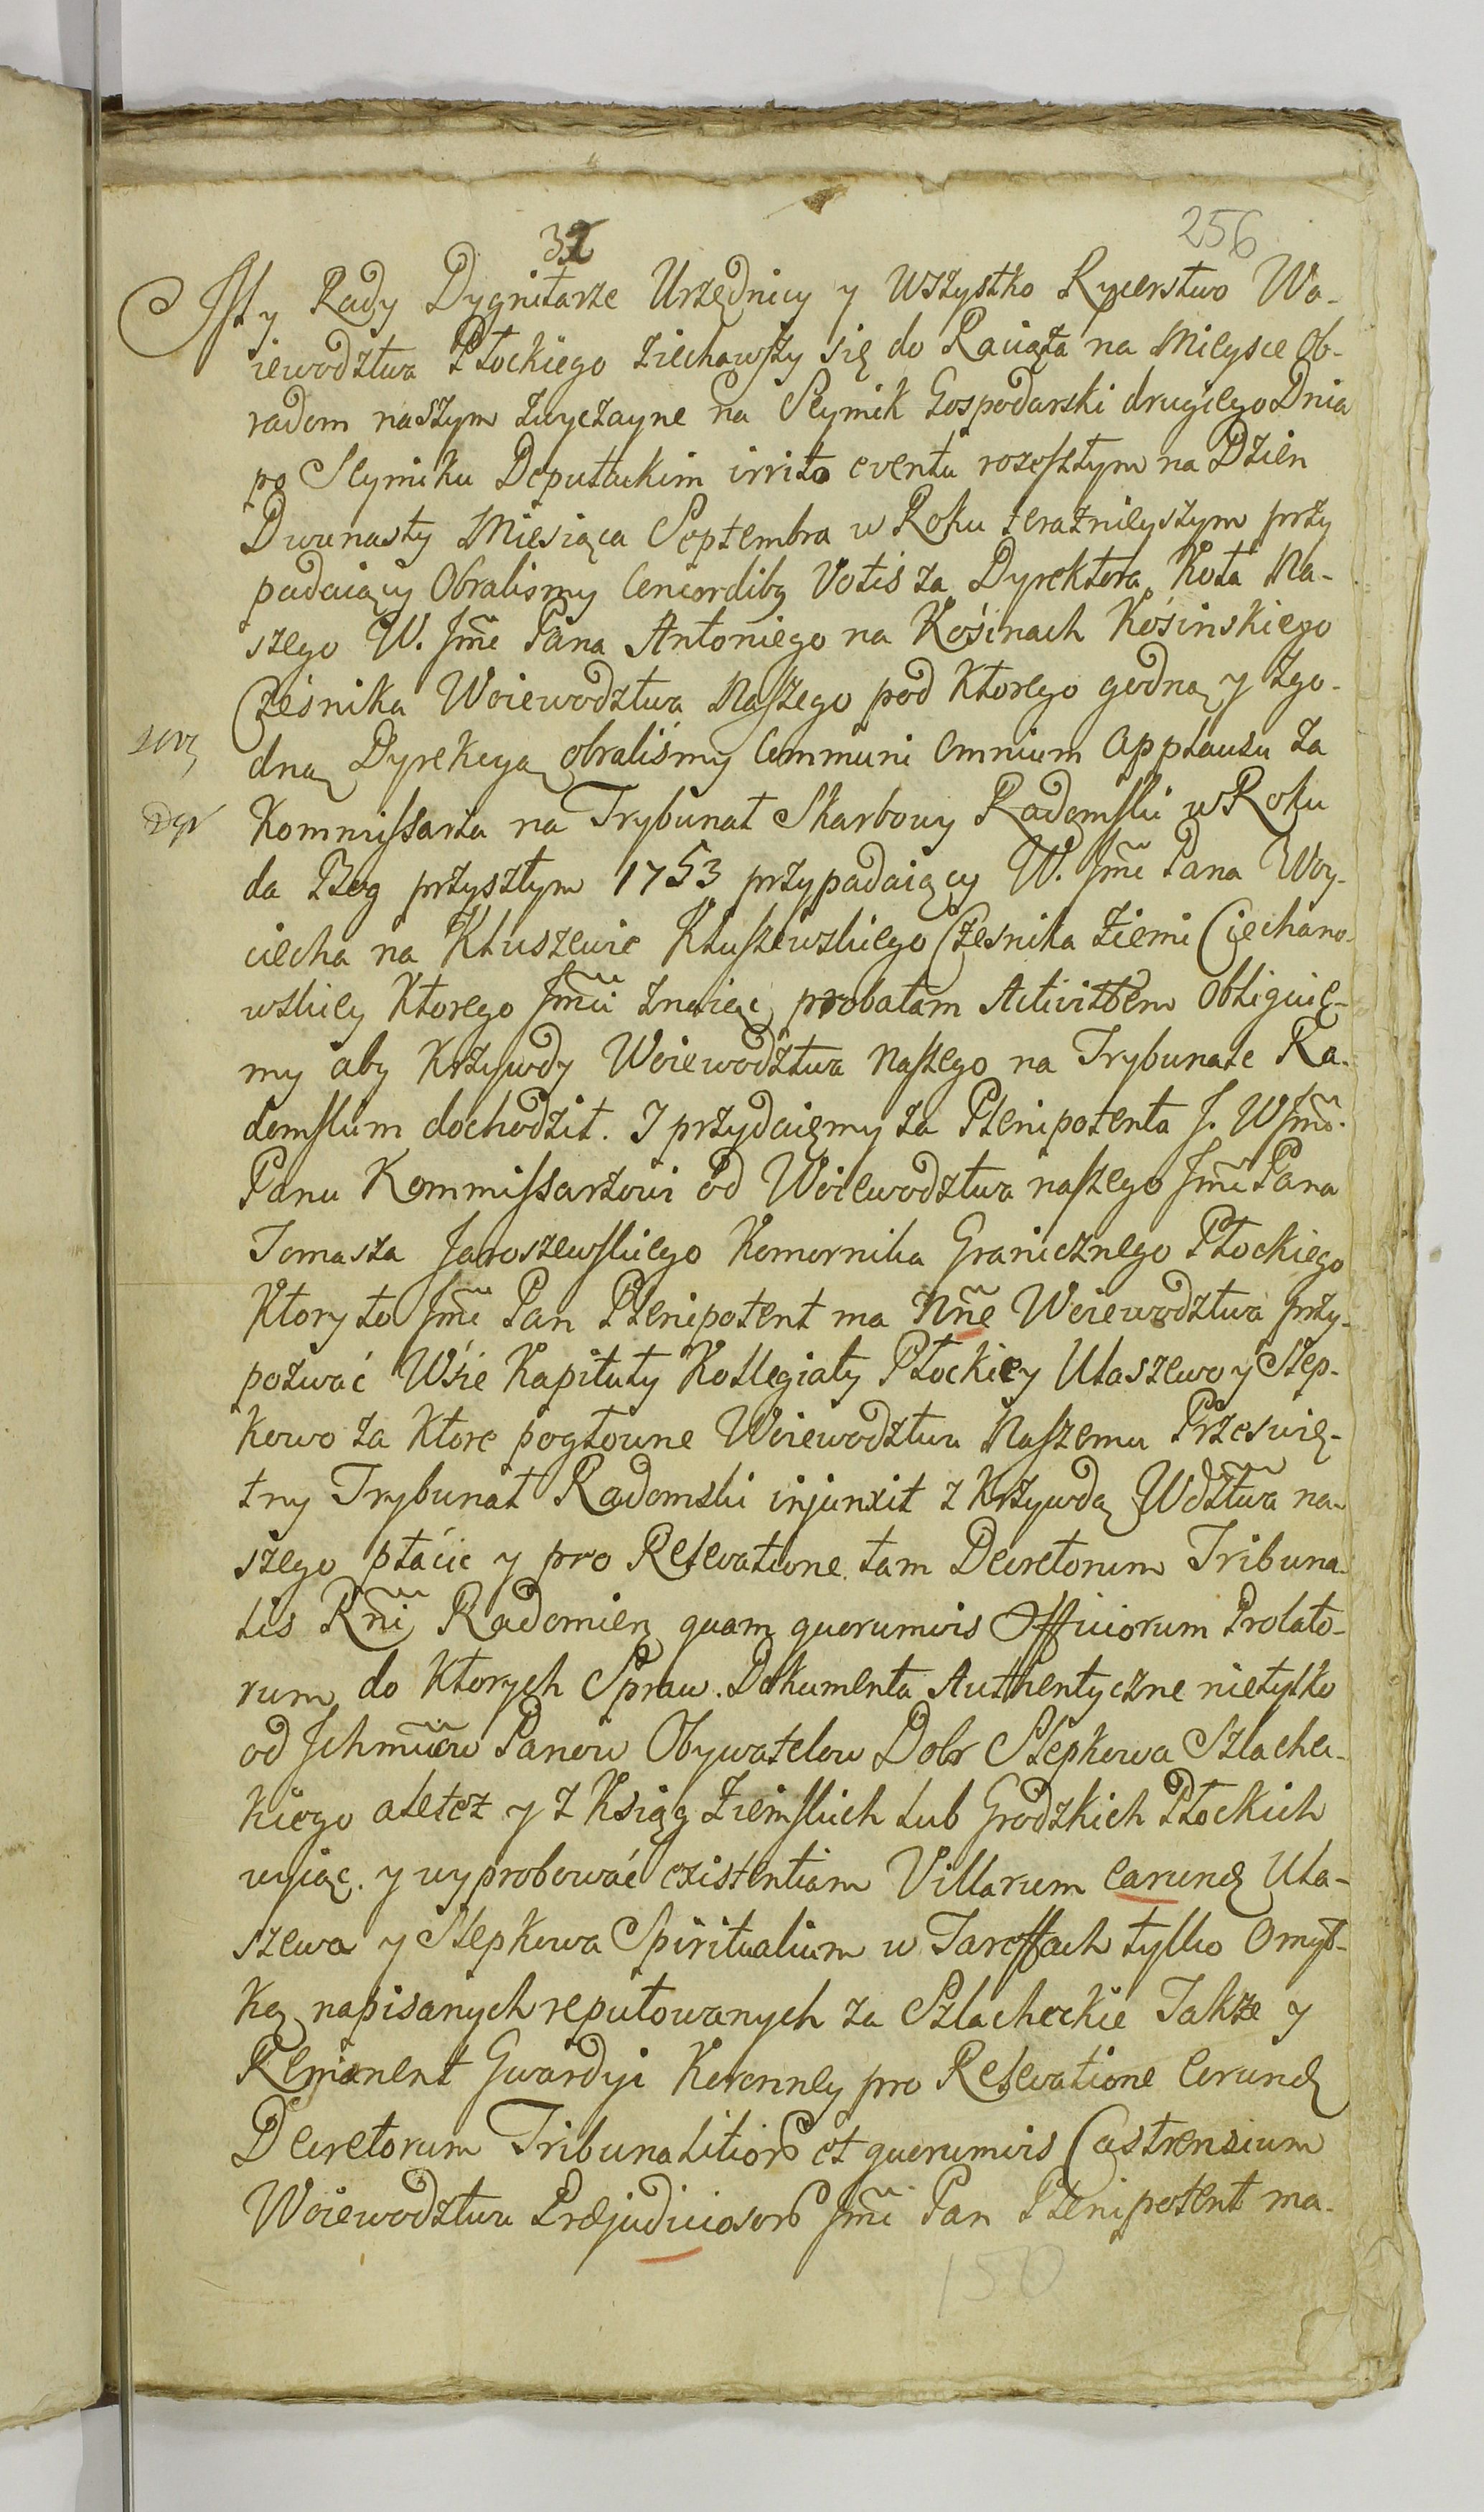 32
256
My Rady Dygnitarze Urzędnicy y Wszystko Rycerstwo Wo-
iewodztwa Płockiego ziechawszy się do Raciąża na Mieysce Ob-
radom naszym zwyczayne na Seymik Gospodarski drugiego Dnia
po Seymiku Deputackim irrito eventu rozeszłym na Dzien
Dwunasty Miesiąca Septembra w Roku teraznieyszym przy
padaiący Obralismy Concordibq Votis za Dyrektora Koła Na-
szego W. Jmci Pana Antoniego na Kośinach Kośinskiego
Cześnika Woiewodztwa Naszego pod Ktorego godną y zgo-
dną Dyrekcyą obraliśmy Communi Omnium Applausu za
Kommissarza na Trybunał Skarbowy Radomski w Roku
da Bog przyszłym 1753 przypadaiący W. Jmci Pana Woy-
ciecha na Kłuszewie Kłuszewskiego Cześnika Ziemi Ciechano-
wskiey Ktorego Jmci znaiąc probatam Activitem Obliguie-
my aby Krzywdy Woiewodztwa Naszego na Trybunale Ra-
domskim dochodził. I przydaiemy za Plenipotenta J. W Jmo.
Panu Kommissarzowi od Woiewodztwa naszego Jmci Pana
Tomasza Jaroszewskiego Komornika Granicznego Płockiego
Ktory to Jmci Pan Plenipotent ma Nñe Woiewodztwa przy-
pozwać Wśie Kapituły Kollegiaty Płockiey Ułaszewo y Slep-
kowo za Ktore pogłowne Woiewodztwu Naszemu Prześwię-
tny Trybunał Radomski injunxit z Krzywdą Wdztwa na-
szego płácic y pro Relevatione tam Decretorum Tribuna-
lis Rñi Radomien quam quorumvis Officiorum Prolato-
rum do Ktorych Spraw. Dokumenta Authentyczne nietylko
od Ichmciow Panow Obywatelow Dobr Slepkowa Szlache-
kiego aletez y z Ksiąg Ziemskich lub Grodzkich Płockich
wyiąc y wyprobować existentiam Villarum earund Uła-
szewa y Slepkowa Spiritualium w Taryffach tylko Omył-
ką napisanych reputowanych za Szlacheckie Takze y
Remanent Gwardyi Koronney pro Relevatione eorund
Decretorum Tribunalitior et quorumvis Castrensium
Woiewodztwu Præjudicioson Jmci Pan Plenipotent ma.
150